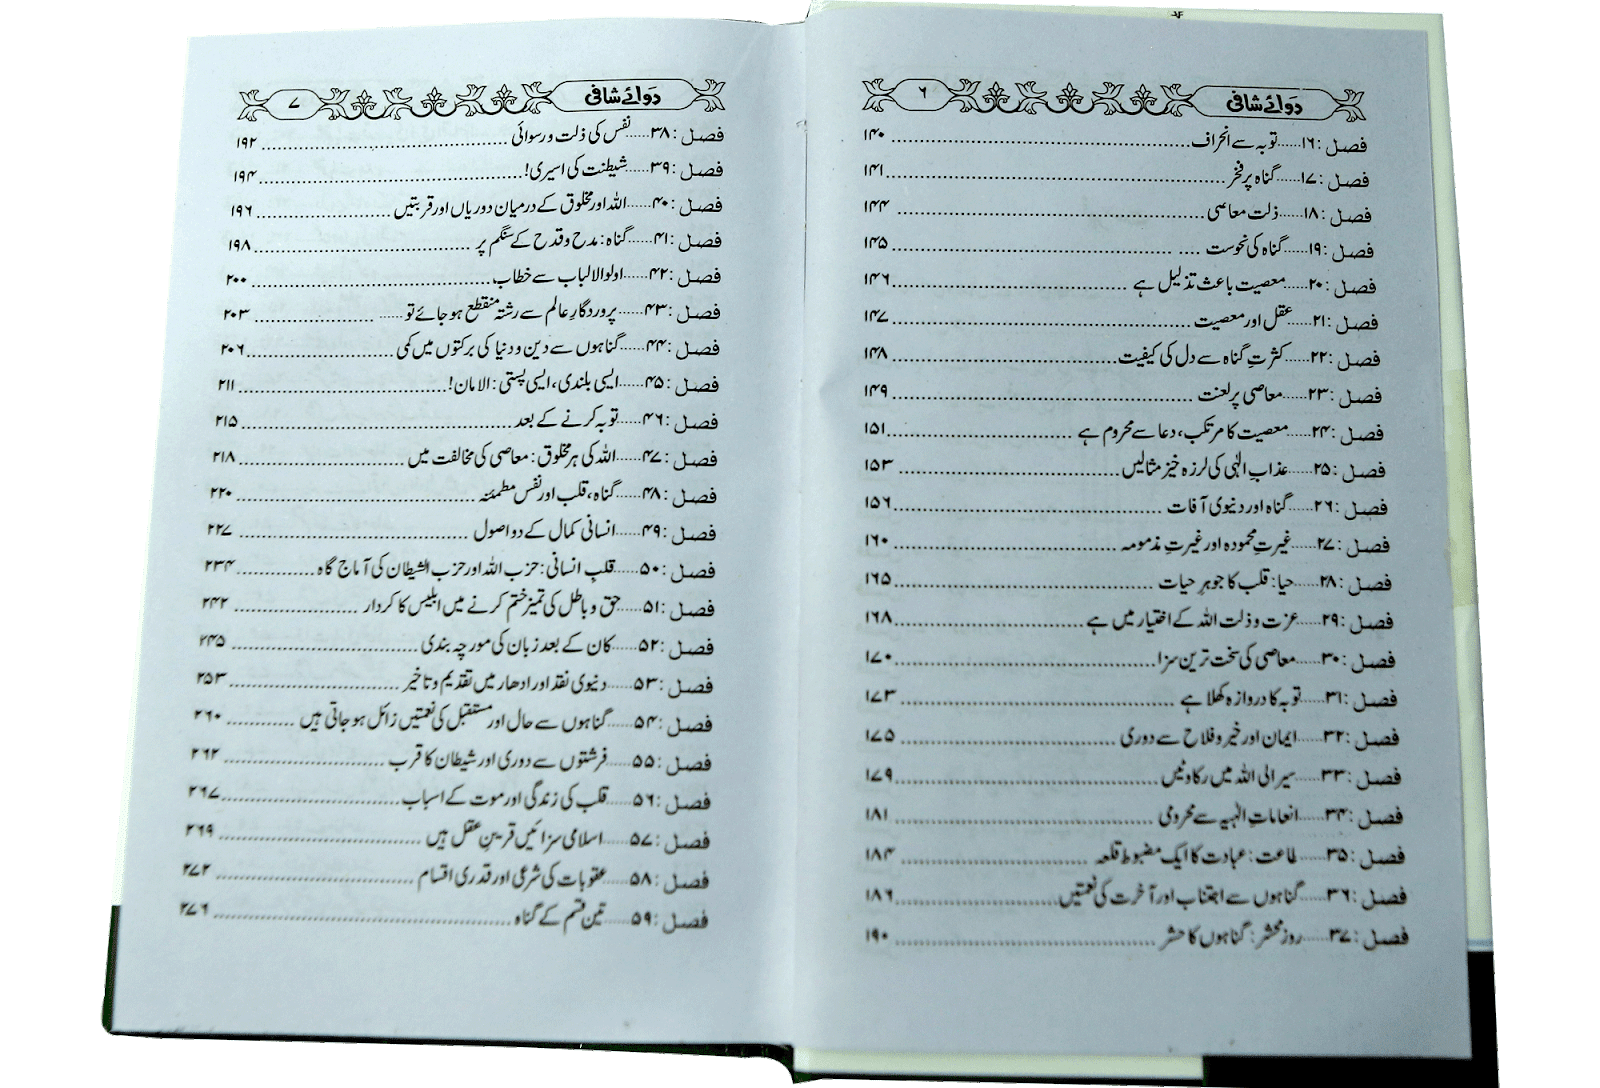 دوائے شافی ۶
فصل :۱۶......توبہ سے انحراف ........ ۱۴۰
فصل :۱۷......گناہ پر فخر ........ ۱۴۱
فصل :۱۸......ذلت معاصی ........ ۱۴۴
فصل :۱۹......گناہ کی نحوست ........ ۱۴۵
فصل :۲۰......معصیت باعث تذلیل ہے ........ ۱۴۶
فصل :۲۱......عقل اور معصیت ........ ۱۴۷
فصل :۲۲......کثرتِ گناہ سے دل کی کیفیت ........ ۱۴۸
فصل :۲۳......معاصی پر لعنت ........ ۱۴۹
فصل :۲۴......معصیت کا مرتکب، دعا سے محروم ہے ........ ۱۵۱
فصل :۲۵......عذابِ الٰہی کی لرزہ خیز مثالیں ........ ۱۵۳
فصل :۲۶......گناہ اور دنیوی آفات ........ ۱۵۶
فصل :۲۷......غیرتِ محمودہ اور غیرتِ مذمومہ ........ ۱۶۰
فصل :۲۸......حیا: قلب کا جوہرِ حیات ........ ۱۶۵
فصل :۲۹......عزت و ذلت اللہ کے اختیار میں ہے ........ ۱۶۸
فصل :۳۰......معاصی کی سخت ترین سزا ........ ۱۷۰
فصل :۳۱......توبہ کا دروازہ کھلا ہے ........ ۱۷۳
فصل :۳۲......ایمان اور خیر و فلاح سے دوری ........ ۱۷۵
فصل :۳۳......سیر الی اللہ میں رکاوٹیں ........ ۱۷۹
فصل :۳۴......انعاماتِ الٰہیہ سے محرومی ........ ۱۸۱
فصل :۳۵......طاعت: عبادت کا ایک مضبوط قلعہ ........ ۱۸۴
فصل :۳۶......گناہوں سے اجتناب اور آخرت کی نعمتیں ........ ۱۸۶
فصل :۳۷......روز محشر: گناہوں کا حشر ........ ۱۹۰
دوائے شافی ۷
فصل :۳۸......نفس کی ذلت و رسوائی ........ ۱۹۲
فصل :۳۹......شیطنت کی اسیری! ........ ۱۹۴
فصل :۴۰......اللہ اور مخلوق کے درمیان دوریاں اور قربتیں ........ ۱۹۶
فصل :۴۱......گناہ: مدح و قدح کے سنگم پر ........ ۱۹۸
فصل :۴۲......اولوالالباب سے خطاب ........ ۲۰۰
فصل :۴۳......پروردگارِ عالم سے رشتہ منقطع ہو جائے تو...... ........ ۲۰۳
فصل :۴۴......گناہوں سے دین و دنیا کی برکتوں میں کمی ........ ۲۰۶
فصل :۴۵......ایسی بلندی، ایسی پستی: الامان! ........ ۲۱۱
فصل :۴۶......توبہ کرنے کے بعد ........ ۲۱۵
فصل :۴۷......اللہ کی ہر مخلوق: معاصی کی مخالفت میں ........ ۲۱۸
فصل :۴۸......گناہ، قلب اور نفس مطمئنہ ........ ۲۲۰
فصل :۴۹......انسانی کمال کے دو اصول ........ ۲۲۷
فصل :۵۰......قلبِ انسانی: حزب اللہ اور حزب الشیطان کی آماج گاہ ........ ۲۳۴
فصل :۵۱......حق و باطل کی تمیز ختم کرنے میں ابلیس کا کردار ........ ۲۴۲
فصل :۵۲......کان کے بعد زبان کی مورچہ بندی ........ ۲۴۵
فصل :۵۳......دنیوی نقد اور ادھار میں تقدیم و تاخیر ........ ۲۵۳
فصل :۵۴......گناہوں سے حال اور مستقبل کی نعمتیں زائل ہو جاتی ہیں ........ ۲۶۰
فصل :۵۵......فرشتوں سے دوری اور شیطان کا قرب ........ ۲۶۲
فصل :۵۶......قلب کی زندگی اور موت کے اسباب ........ ۲۶۷
فصل :۵۷......اسلامی سزائیں قرینِ عقل ہیں ........ ۲۶۹
فصل :۵۸......عقوبات کی شرعی اور قدری اقسام ........ ۲۷۲
فصل :۵۹......تین قسم کے گناہ ........ ۲۷۶